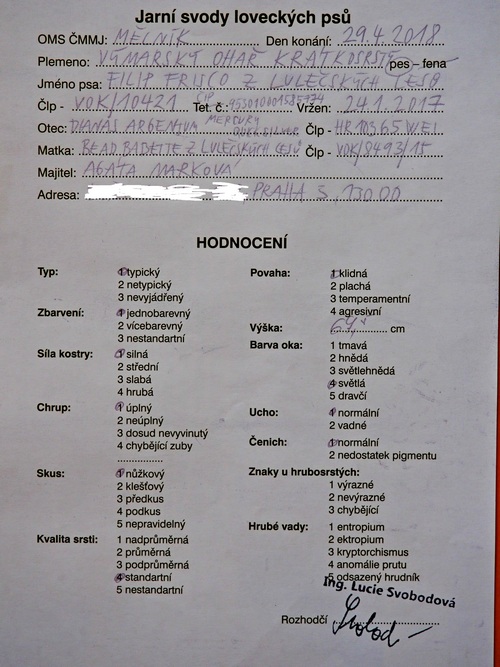 Jarní svody loveckých psů
OMS ČMMJ: MĚLNÍK Den konání: 29.4.2018
Plemeno: VÝMARSKÝ OHAŘ KRÁTKOSRSTÝ pes – fena
Jméno psa: FILIP FRISCO Z LULEČSKÝCH LESŮ
Člp - VOK/10421 Tet. č.: Vržen: 24.1.2017
Otec: DIANAS ARGENTUM MERCURY QUICKSILVER Člp - HR 10365 WEI
Matka: BEAD BABETTE Z LULEČSKÝCH LESŮ Člp - VOK/8493/15
Majitel: AGÁTA MARKOVÁ
Adresa: PRAHA 3, 130 00
HODNOCENÍ
Typ: 1 typický
2 netypický
3 nevyjádřený
Zbarvení: 1 jednobarevný
2 vícebarevný
3 nestandartní
Síla kostry: 1 silná
2 střední
3 slabá
4 hrubá
Chrup: 1 úplný
2 neúplný
3 dosud nevyvinutý
4 chybějící zuby
...............
Skus: 1 nůžkový
2 klešťový
3 předkus
4 podkus
5 nepravidelný
Kvalita srsti: 1 nadprůměrná
2 průměrná
3 podprůměrná
4 standartní
5 nestandartní
Povaha: 1 klidná
2 plachá
3 temperamentní
4 agresivní
Výška: 64 cm
Barva oka: 1 tmavá
2 hnědá
3 světlehnědá
4 světlá
5 dravčí
Ucho: 1 normální
2 vadné
Čenich: 1 normální
2 nedostatek pigmentu
Znaky u hrubosrstých:
1 výrazné
2 nevýrazné
3 chybějící
Hrubé vady: 1 entropium
2 ektropium
3 kryptorchismus
4 anomálie prutu
5 odsazený hrudník
Ing. Lucie Svobodová
Rozhodčí